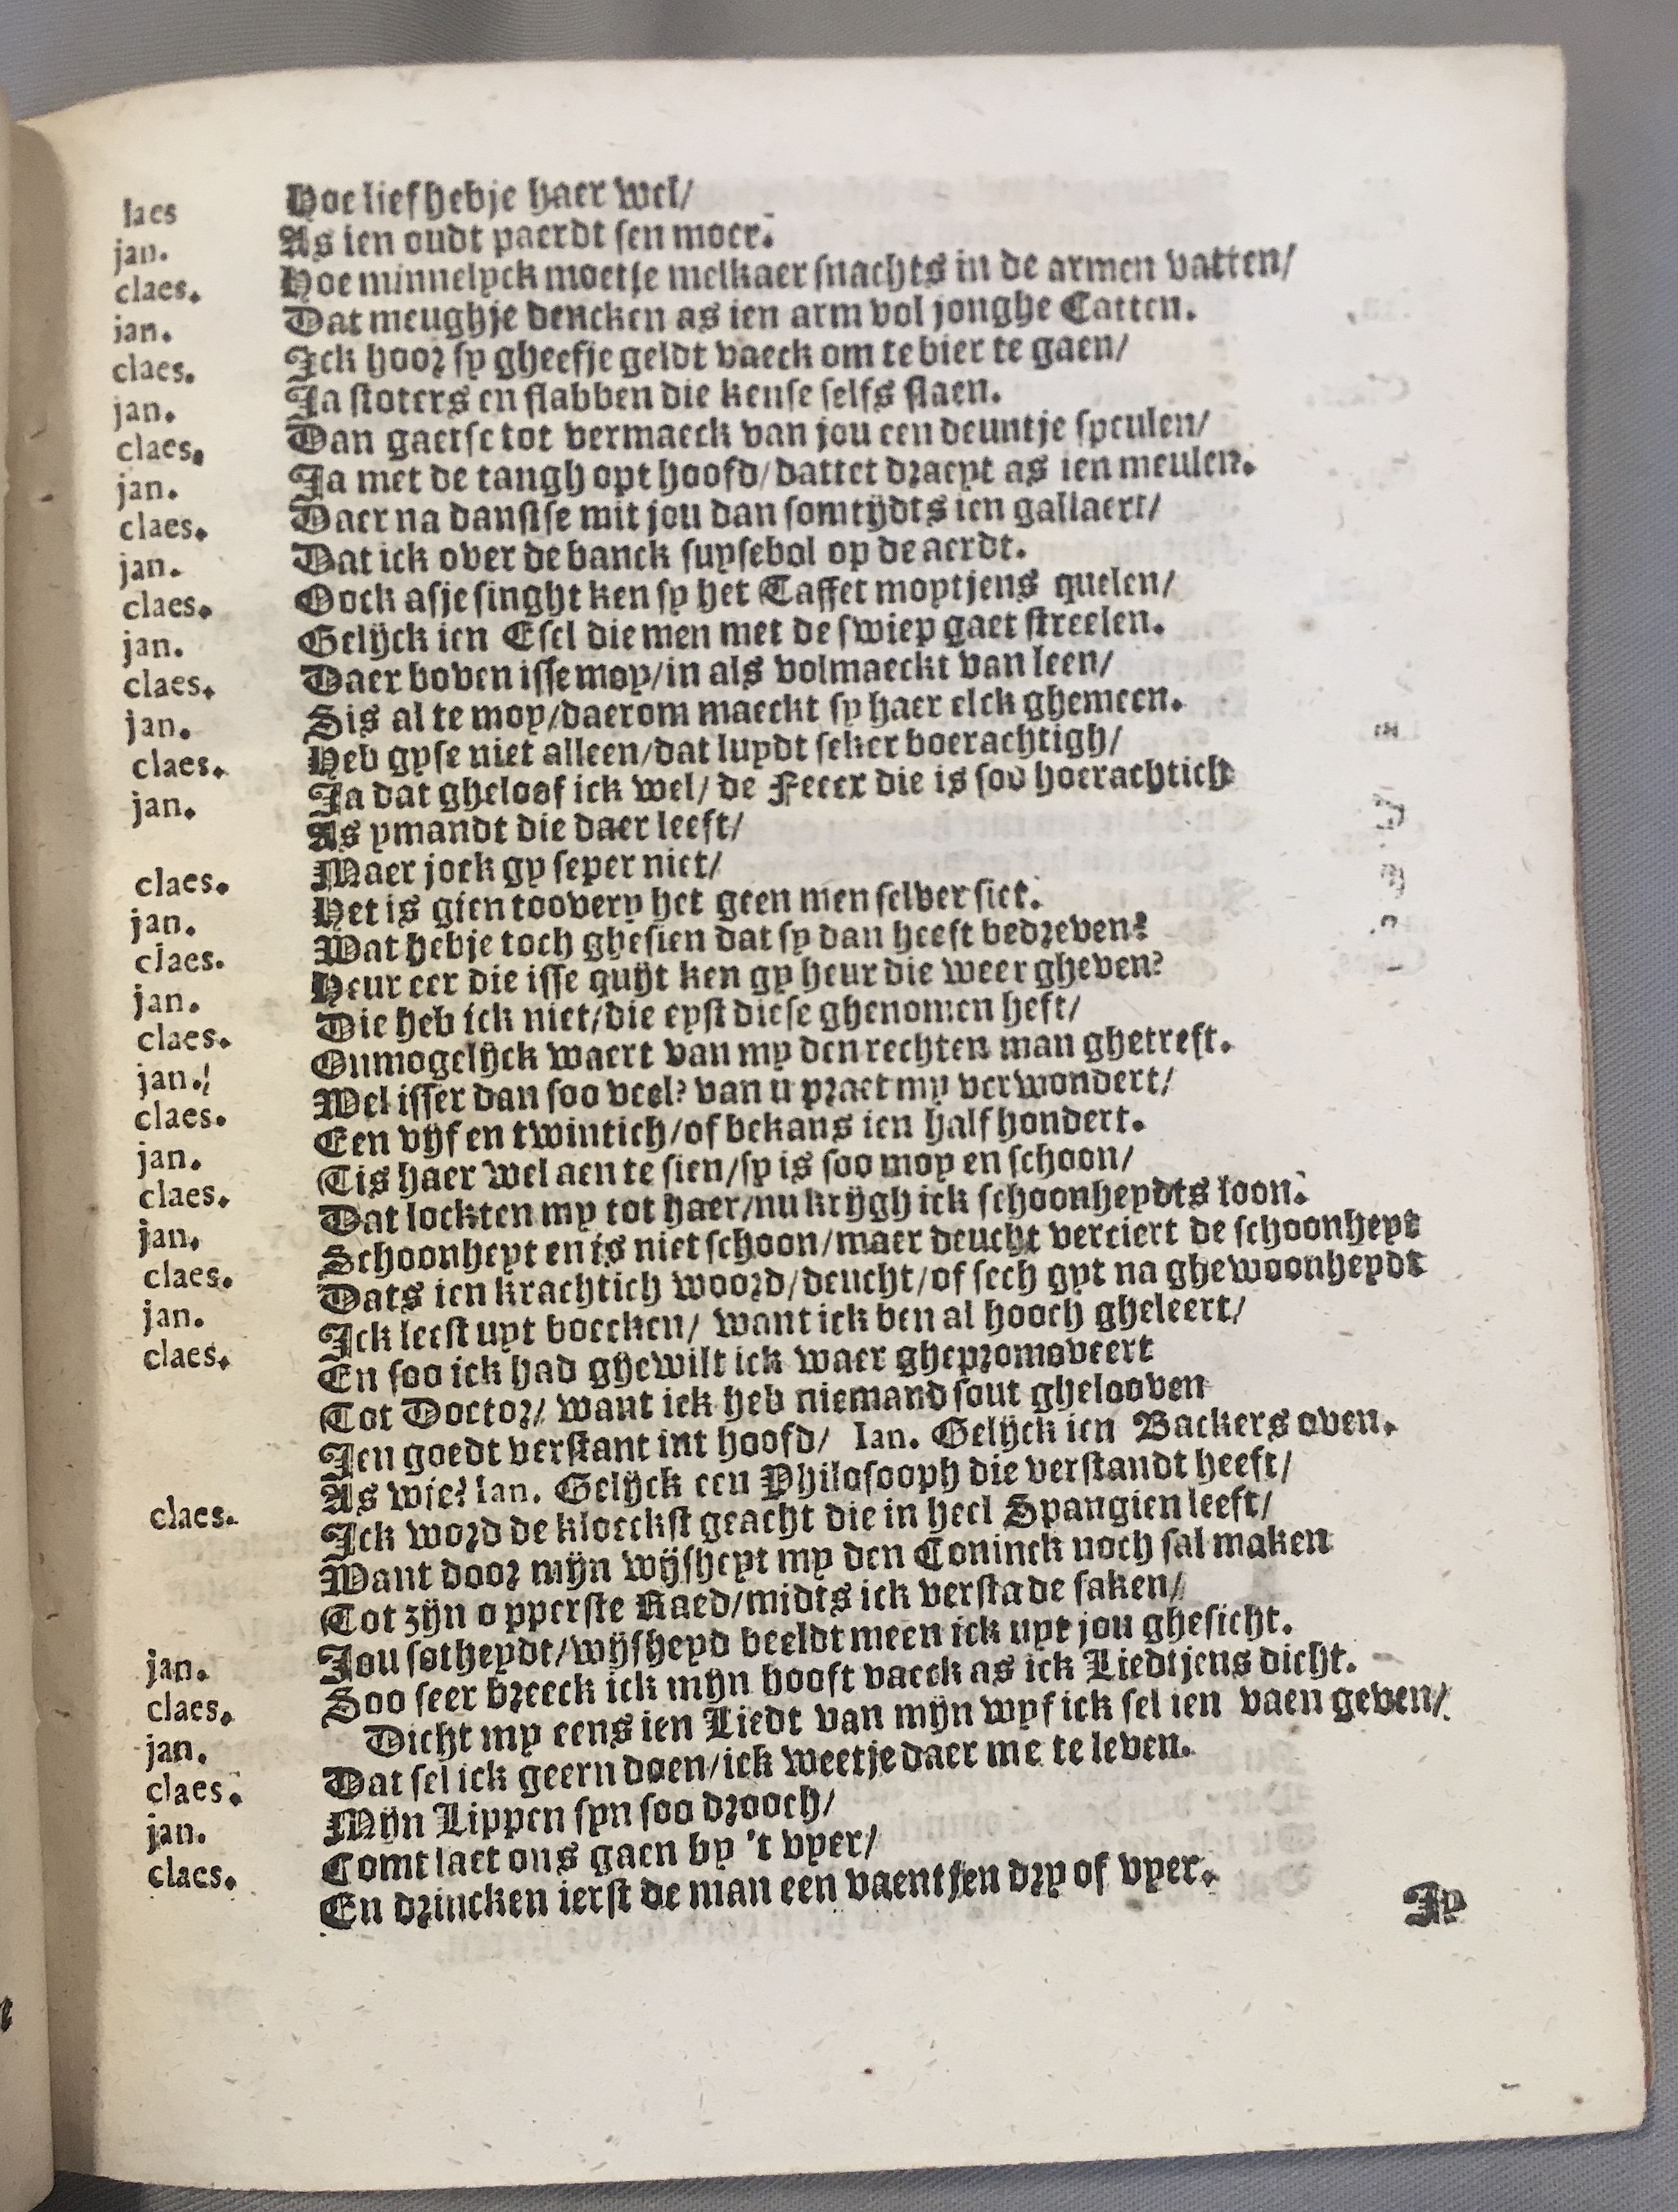 laes Hoe lief hebje haer wel/
jan. As ien oudt paerdt sen moer.
claes. Hoe minnelyck moetje melkaer snachts in de armen vatten/
jan. Dat meughje dencken as ien arm vol jonghe Catten.
claes. Ick hoor sy gheefje geldt vaeck om te bier te gaen/
jan. Ja stoters en flabben die kense selfs slaen.
claes. Dan gaetse tot vermaeck van jou een deuntje speulen/
jan. Ja met de tangh opt hoofd/dattet draeyt as ien meulen.
claes. Daer na danstse mit jou dan somtijdts ien gallaert/
jan. Dat ick over de banck suysebol op de aerdt.
claes. Oock asje singht ken sy het Taffet moytjens quelen/
jan. Gelijck ien Esel die men met de swiep gaet streelen.
claes. Daer boven isse moy/in als volmaeckt van leen/
jan. Sis al te moy/daerom maeckt sy haer elck ghemeen.
claes. Heb gyse niet alleen/dat luydt seker boerachtigh/
jan. Ja dat gheloof ick wel/ de Feeex die is soo hoerachtich
As ymandt die daer leeft/
claes. Maer jock gy seper niet/
jan. Het is gien toovery het geen men selver siet.
claes. Wat hebje toch ghesien dat sy dan heeft bedreven?
jan. Heur eer die isse quijt ken gy heur die weer gheven?
claes. Die heb ick niet/die eyst diese ghenomen heft/
jan. Onmogelijck waert van my den rechten man ghetreft.
claes. Wel isser dan soo veel? van u praet my verwondert/
jan. Een vijf en twintich/of bekans ien half hondert.
claes. Tis haer wel aen te sien/sy is soo moy en schoon/
jan. Dat lockten my tot haer/nu krijgh ick schoonheydts loon.
claes. Schoonheyt en is niet schoon/maer deucht verciert de schoonheyt
jan. Dats ien krachtich woord/deucht/of sech gyt na ghewoonheydt
claes. Ick leest uyt boecken/ want ick ben al hooch gheleert/
En soo ick had ghewilt ick waer ghepromoveert
Tot Doctor/ want ick heb niemand sout ghelooven
Ien goedt verstant int hoofd/ Ian. Gelijck ien Backers oven.
As wie? Ian. Gelijck een Philosooph die verstandt heeft/
claes. Ick word de kloeckst geacht die in heel Spangien leeft/
Want door mijn wijsheyt my den Coninck noch sal maken
Tot zijn opperste Raed/midts ick versta de saken/
jan. Jou sotheydt/wijsheyd beeldt meen ick uyt jou ghesicht.
claes. Soo seer breeck ick mijn hooft vaeck as ick Liedtjens dicht.
jan. Dicht my eens ien Liedt van mijn wyf ick sel ien vaen geven/
claes. Dat sel ick geern doen/ick weetje daer me te leven.
jan. Mijn Lippen syn soo drooch/
claes. Comt laet ons gaen by 't vyer/
En drincken ierst de man een vaentjen dry of vyer.
Jy